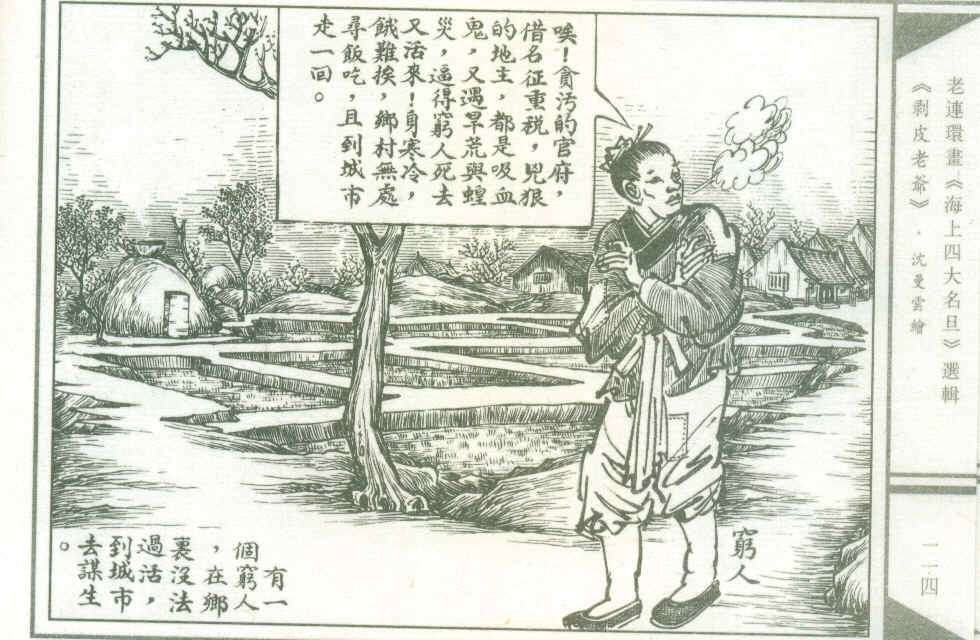 老連環畫《海上四大名旦》選輯
《剥皮老爺》·沈曼雲繪
二四
唉！貪污的官府，
借名征重税，兇狠
的地主，都是吸血
鬼，又遇旱荒與蝗
災，逼得窮人死去
又活來！身寒冷，
餓難挨，鄉村無處
尋飯吃，且到城市
走一囬。
窮人
有一
個窮人
，在鄉
裏没法
過活，
到城市
去謀生
。